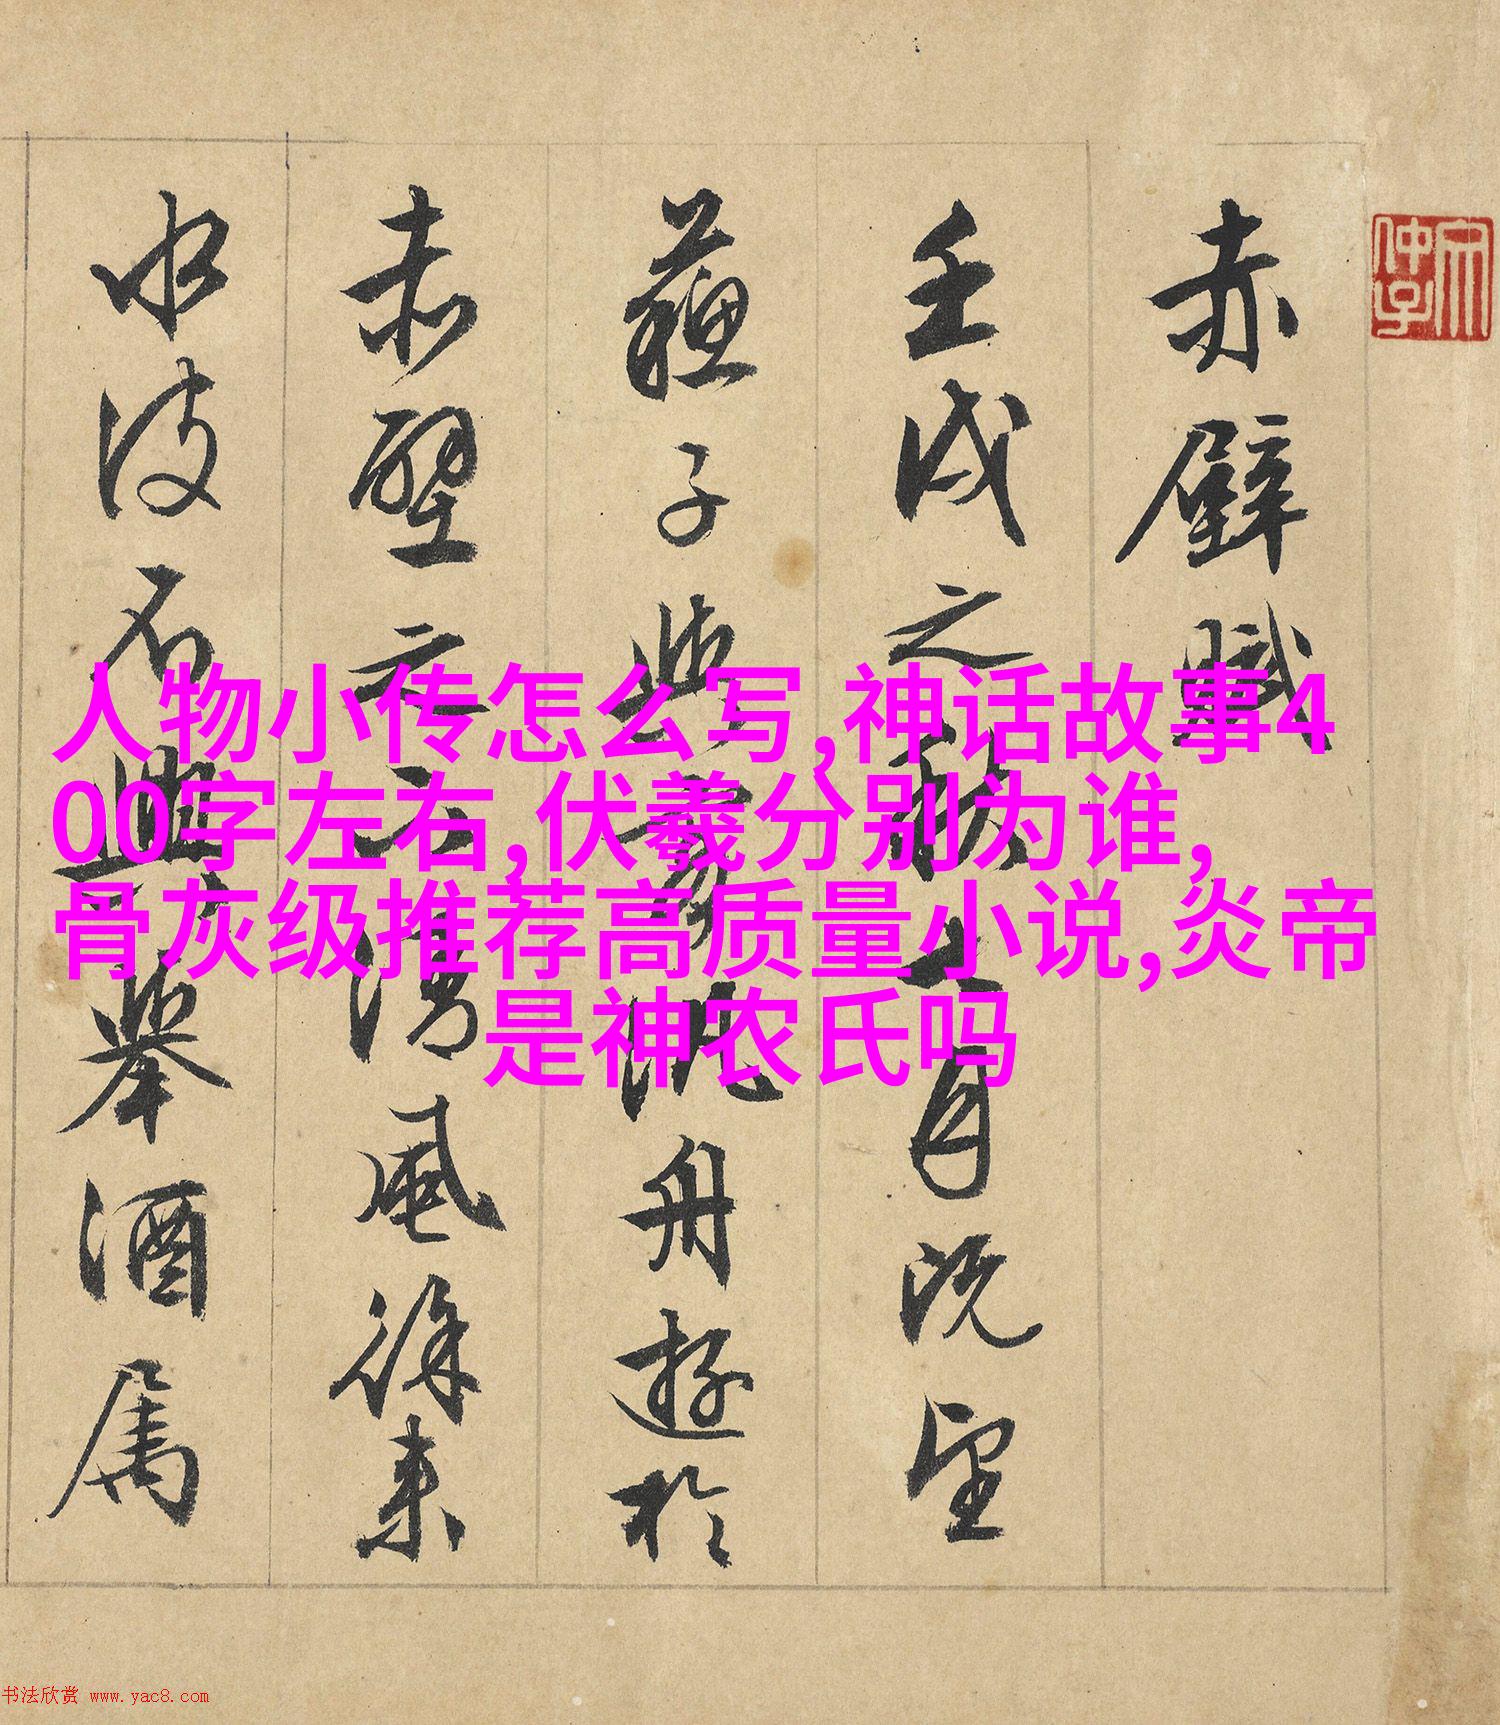 赤壁賦
壬戌之秋七月既望
蘇子與客泛舟遊於
赤壁之下清風徐来
水波不興舉酒属
人物小传怎么写,神话故事4
00字左右,伏羲分别为谁,
骨灰级推荐高质量小说,炎帝
是神农氏吗
书法欣赏 www.yac8.com